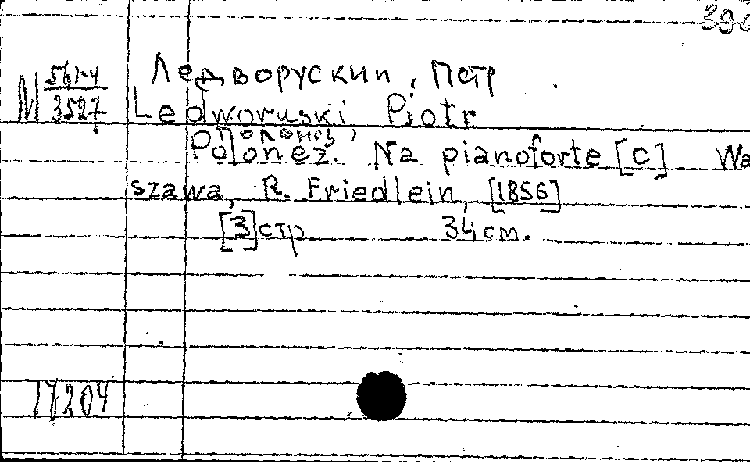 396
Ледворускии, Петр
М 5614/3527
Ledworuski Piotr
(Полонез)
Polonez. Na pianoforte [c] Wa
szawa, R. Friedlein, [1856]
[3] стр 34 см.
17204